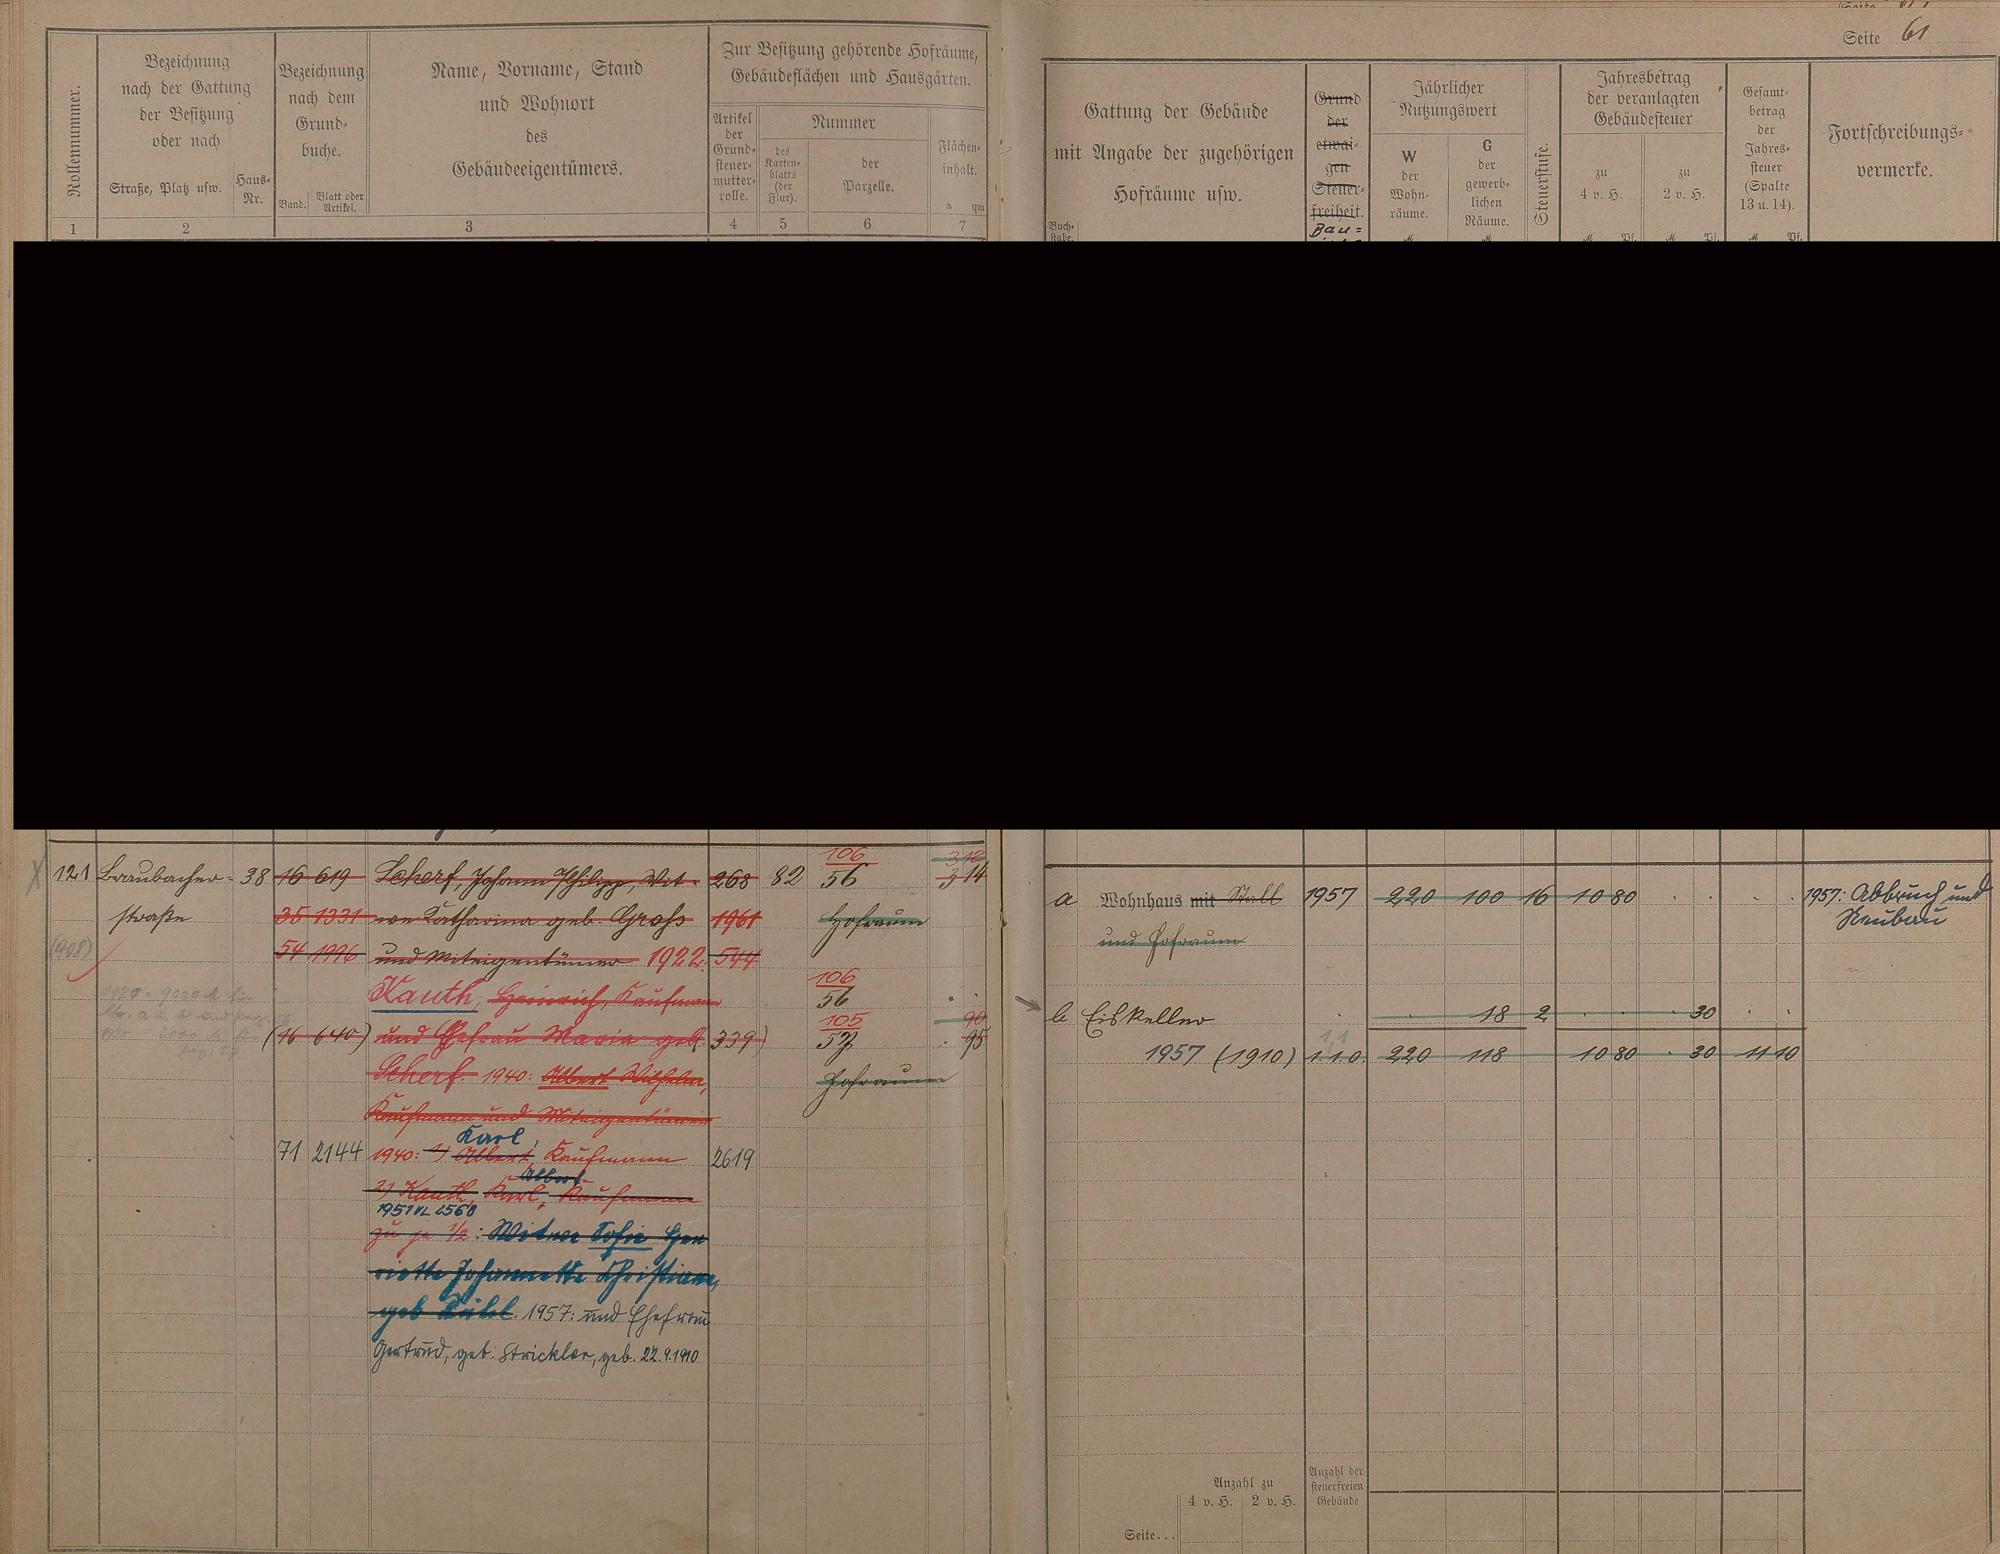 Seite 61
Rollennummer.
Bezeichnung
nach der Gattung
der Besitzung
oder nach
Straße, Platz usw.
Haus-
Nr.
Bezeichnung
nach dem
Grund-
buche.
Band.
Blatt oder
Artikel.
Name, Vorname, Stand
und Wohnort
des
Gebäudeeigentümers.
Zur Besitzung gehörende Hofräume,
Gebäudeflächen und Hausgärten.
Artikel
der
Grund-
steuer-
mutter-
rolle.
Nummer
des
Karten-
blatts
(der
Flur).
der
Parzelle.
Flächen-
inhalt.
a qm
1 2 3 4 5 6 7
Gattung der Gebäude
mit Angabe der zugehörigen
Hofräume usw.
Buch-
stabe.
Grund
der
etwai-
gen
Steuer-
freiheit.
Bau-
Jährlicher
Nutzungswert
W
der
Wohn-
räume.
M
G
der
gewerb-
lichen
Räume.
M
Steuerstufe.
Jahresbetrag
der veranlagten
Gebäudesteuer
zu
4 v. H.
M Pf.
zu
2 v. H.
M Pf.
Gesamt-
betrag
der
Jahres-
steuer
(Spalte
13 u. 14).
M Pf.
Fortschreibungs-
vermerke.
121 Braubacher- 38 16 619 Scherf, Johann Philipp, Wit- 268 82 106/56 3 14
straße 35 1331 we Katharina geb. Groß 1961 Hofraum
(908) 54 1996 und Miteigentümer 1922: 544
Kauth, Heinrich, Kaufmann 106/56
(16 640) und Ehefrau Maria geb. 339) 105/57 90 95
Scherf. 1940: Albert Wilhelm, Hofraum
Kaufmann und Miteigentümer
Karl,
71 2144 1940: 1) Albert, Kaufmann 2619
Albert
2) Kauth, Karl, Kaufmann
1951 VL 2568
zu je 1/2: Witwe Sofie Hen
riette Johannette Christiane,
geb. 1957: und Ehefrau
Gertrud, geb. Strickler, geb. 22.9.1910
a Wohnhaus mit Stall 1957 220 100 16 10 80 1957: Abbruch und
und Hofraum Neubau
b Eiskeller 18 2 30
1957 (1910) 1.1.0. 220 118 10 80 30 11 10
Anzahl zu
4 v. H. 2 v. H.
Anzahl der
steuerfreien
Gebäude
Seite...